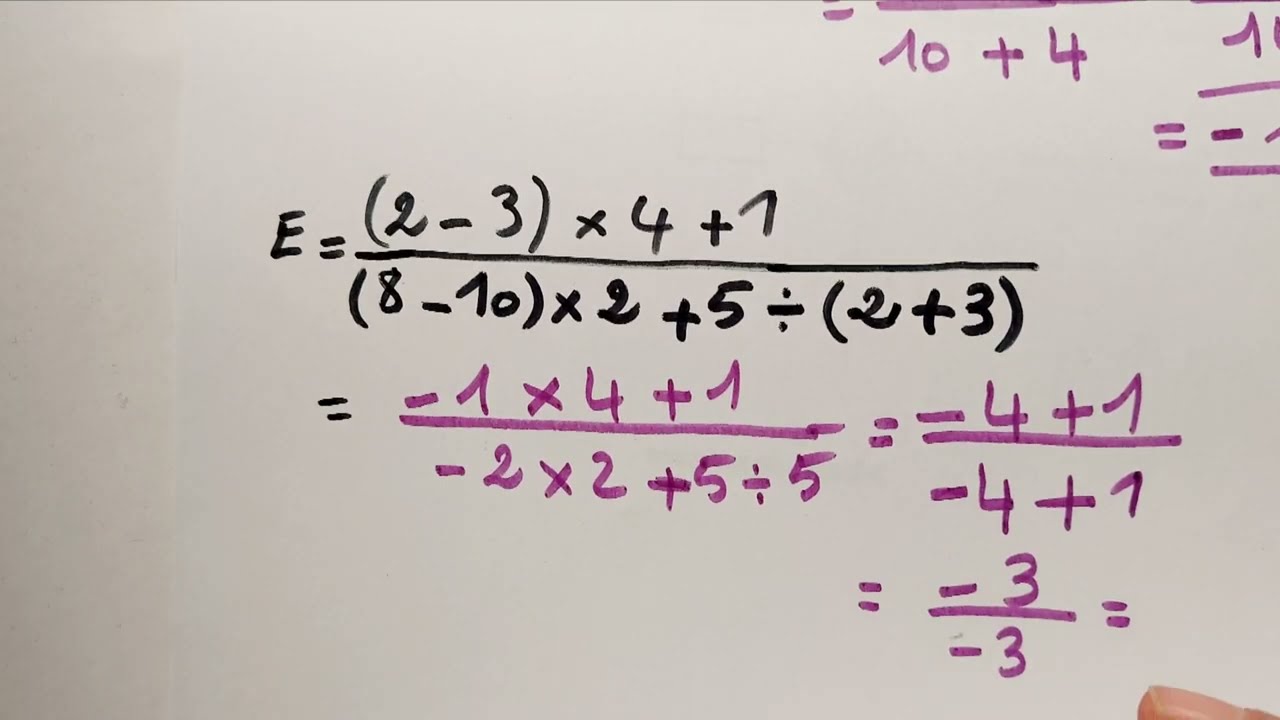 =
10 + 4
= -1
E = (2 - 3) × 4 + 1
(8 - 10) × 2 + 5 ÷ (2 + 3)
= -1 × 4 + 1 = -4 + 1
-2 × 2 + 5 ÷ 5 -4 + 1
= -3 =
-3